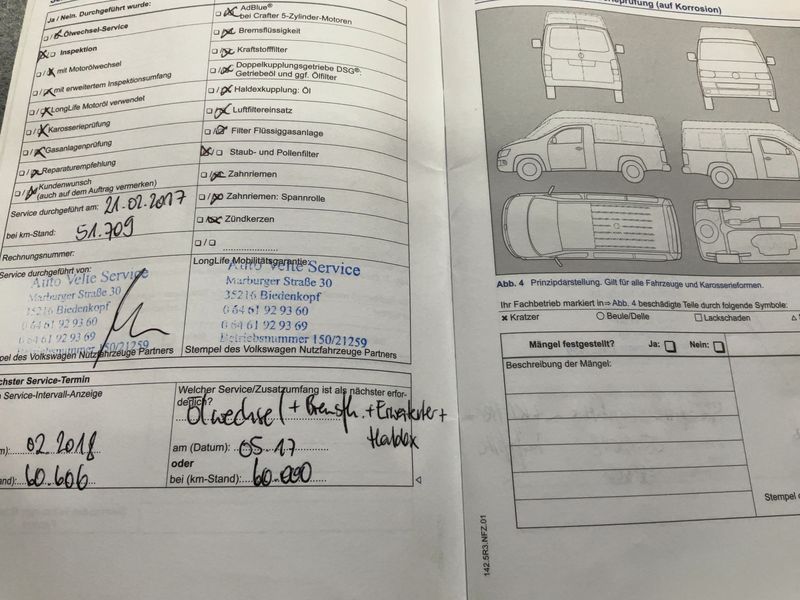 Ja / Nein. Durchgeführt wurde:
❑ / ❑ Ölwechsel-Service
❑ / ❑ Inspektion
❑ / ❑ mit Motorölwechsel
❑ / ❑ mit erweitertem Inspektionsumfang
❑ / ❑ LongLife Motoröl verwendet
❑ / ❑ Karosserieprüfung
❑ / ❑ Gasanlagenprüfung
❑ / ❑ Reparaturempfehlung
❑ / ❑ Kundenwunsch
(auch auf dem Auftrag vermerken)
Service durchgeführt am: 21.02.2017
bei km-Stand: 51.709
Rechnungsnummer:
Service durchgeführt von:
Auto Velte Service
Marburger Straße 30
35216 Biedenkopf
0 64 61 92 93 60
0 64 61 92 93 69
150/21259
pel des Volkswagen Nutzfahrzeuge Partners
❑ / ❑ AdBlue®
bei Crafter 5-Zylinder-Motoren
❑ / ❑ Bremsflüssigkeit
❑ / ❑ Kraftstofffilter
❑ / ❑ Doppelkupplungsgetriebe DSG®:
Getriebeöl und ggf. Ölfilter
❑ / ❑ Haldexkupplung: Öl
❑ / ❑ Luftfiltereinsatz
❑ / ❑ Filter Flüssiggasanlage
❑ / ❑ Staub- und Pollenfilter
❑ / ❑ Zahnriemen
❑ / ❑ Zahnriemen: Spannrolle
❑ / ❑ Zündkerzen
❑ / ❑
LongLife Mobilitätsgarantie:
Auto Velte Service
Marburger Straße 30
35216 Biedenkopf
0 64 61 92 93 60
0 64 61 92 93 69
Betriebsnummer 150/21259
Stempel des Volkswagen Nutzfahrzeuge Partners
chster Service-Termin
Service-Intervall-Anzeige
02.2018
60.606
Welcher Service/Zusatzumfang ist als nächster erfor-
derlich?
Ölwechsel + Bremsfl. + Erweiterter +
Haldex
am (Datum): 05.17
oder
bei (km-Stand): 60.000
prüfung (auf Korrosion)
Abb. 4 Prinzipdarstellung. Gilt für alle Fahrzeuge und Karosserieformen.
Ihr Fachbetrieb markiert in ⇒ Abb. 4 beschädigte Teile durch folgende Symbole:
✖ Kratzer ○ Beule/Delle □ Lackschaden △
Mängel festgestellt? Ja: ❑ Nein: ❑
Beschreibung der Mängel:
Stempel
142.5R3.NFZ.01